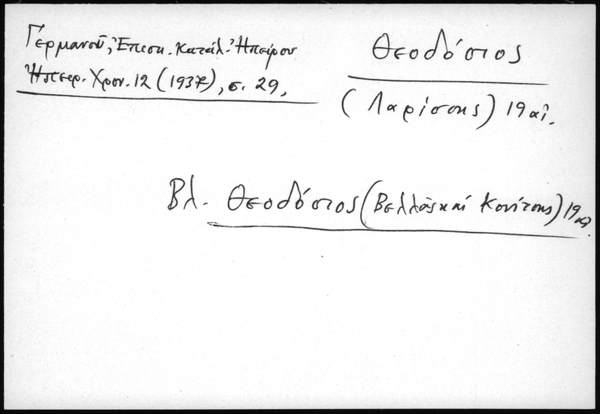 Γερμανοῦ, Ἐπισκ. Κατάλ. Ἠπείρου
Ἠπειρ. Χρον. 12 (1937), σ. 29,
Θεοδόσιος
(Λαρίσσης) 19 αἰ.
Βλ. Θεοδόσιος (Βελλᾶς καὶ Κονίτσης) 19 αἰ.